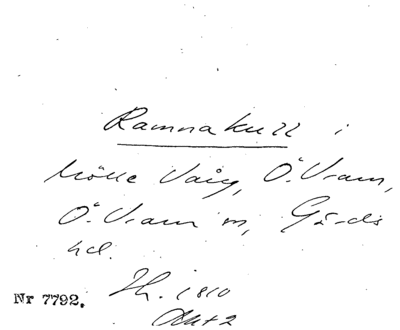 Ramnakull i
Mölle Vång, Ö. Vram,
Ö. Vram sn, Gärds
hd.
Nr 7792. Sk. 1810
Akt 2